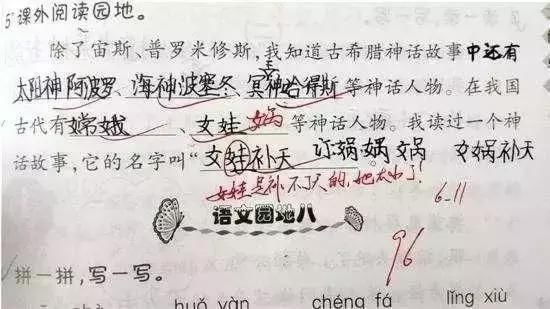 5.课外阅读园地。
除了宙斯、普罗米修斯,我知道古希腊神话故事中还有
太阳神阿波罗、海神波塞冬、冥神哈得斯等神话人物。在我国
古代有嫦娥、女娃 娲等神话人物。我读过一个神
话故事,它的名字叫“女娃补天 订:娲 娲 女娲 女娲补天
女娃是补不了天的,她太小了! 6.11
语文园地八
96
拼一拼,写一写。
huǒ yàn chéng fá lǐng xiù